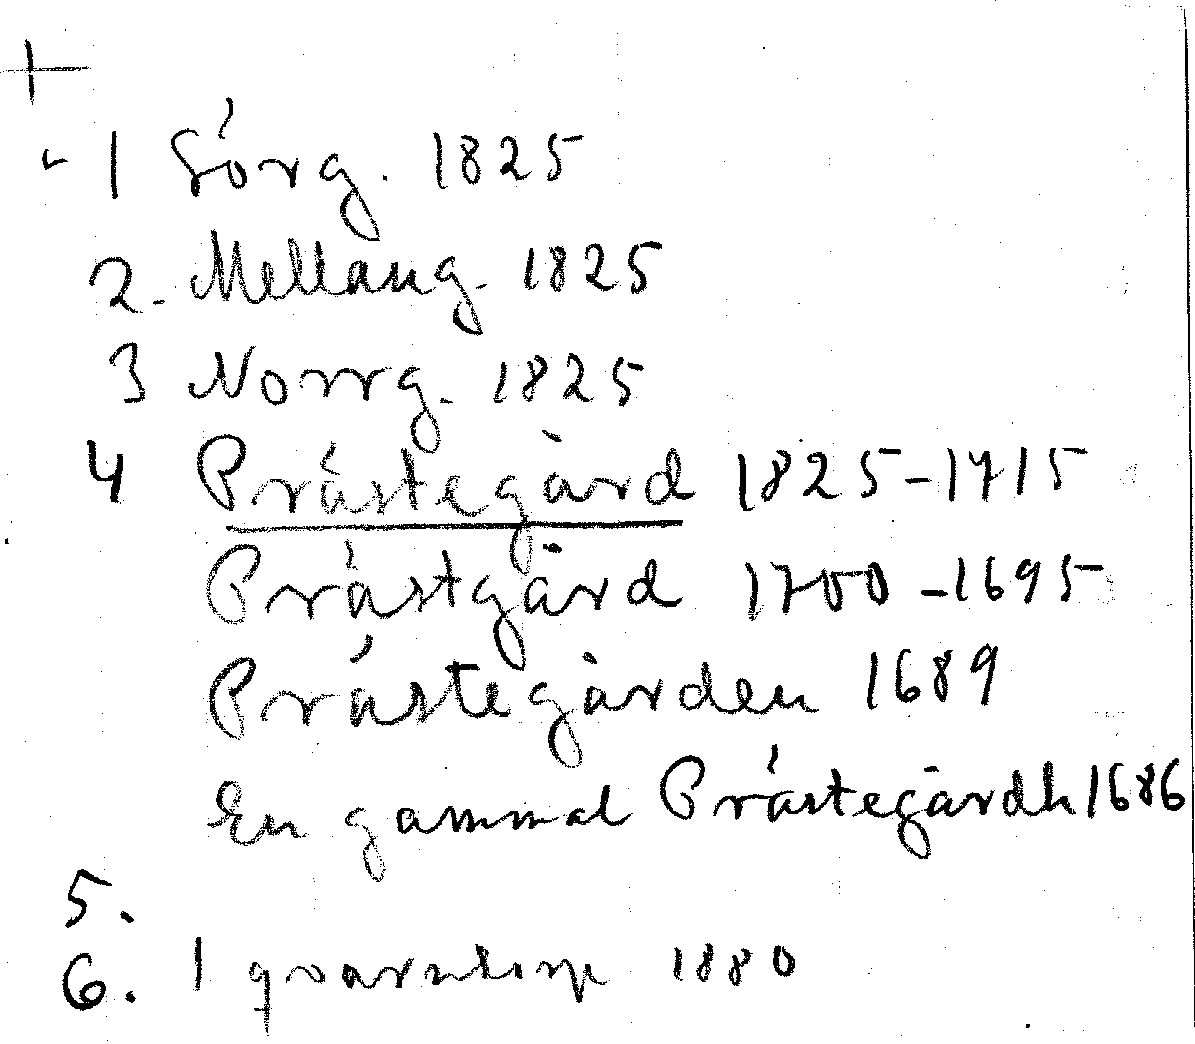 1 Sörg. 1825
2. Mellang. 1825
3 Norrg. 1825
4 Prästegård 1825-1715
Prästgård 1700-1695
Prästegården 1689
En gammal Prästegårdh 1686
5.
6. 1 qvarnstomp 1880